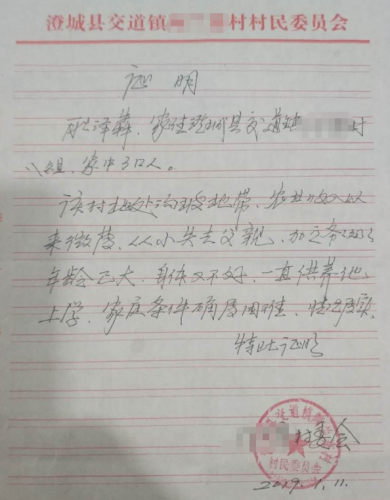 澄城县交道镇 村村民委员会
证明
耿泽 、家住澄城县交道镇 村
八组,家中3口人。
该村地处沟坡地带,农业收入以
来微薄,从小失去父亲,加之爷奶
年龄已大,身体又不好,一直供养他
上学,家庭条件确属困难,情况属实
特此证明
村委会
村民委员会
11.